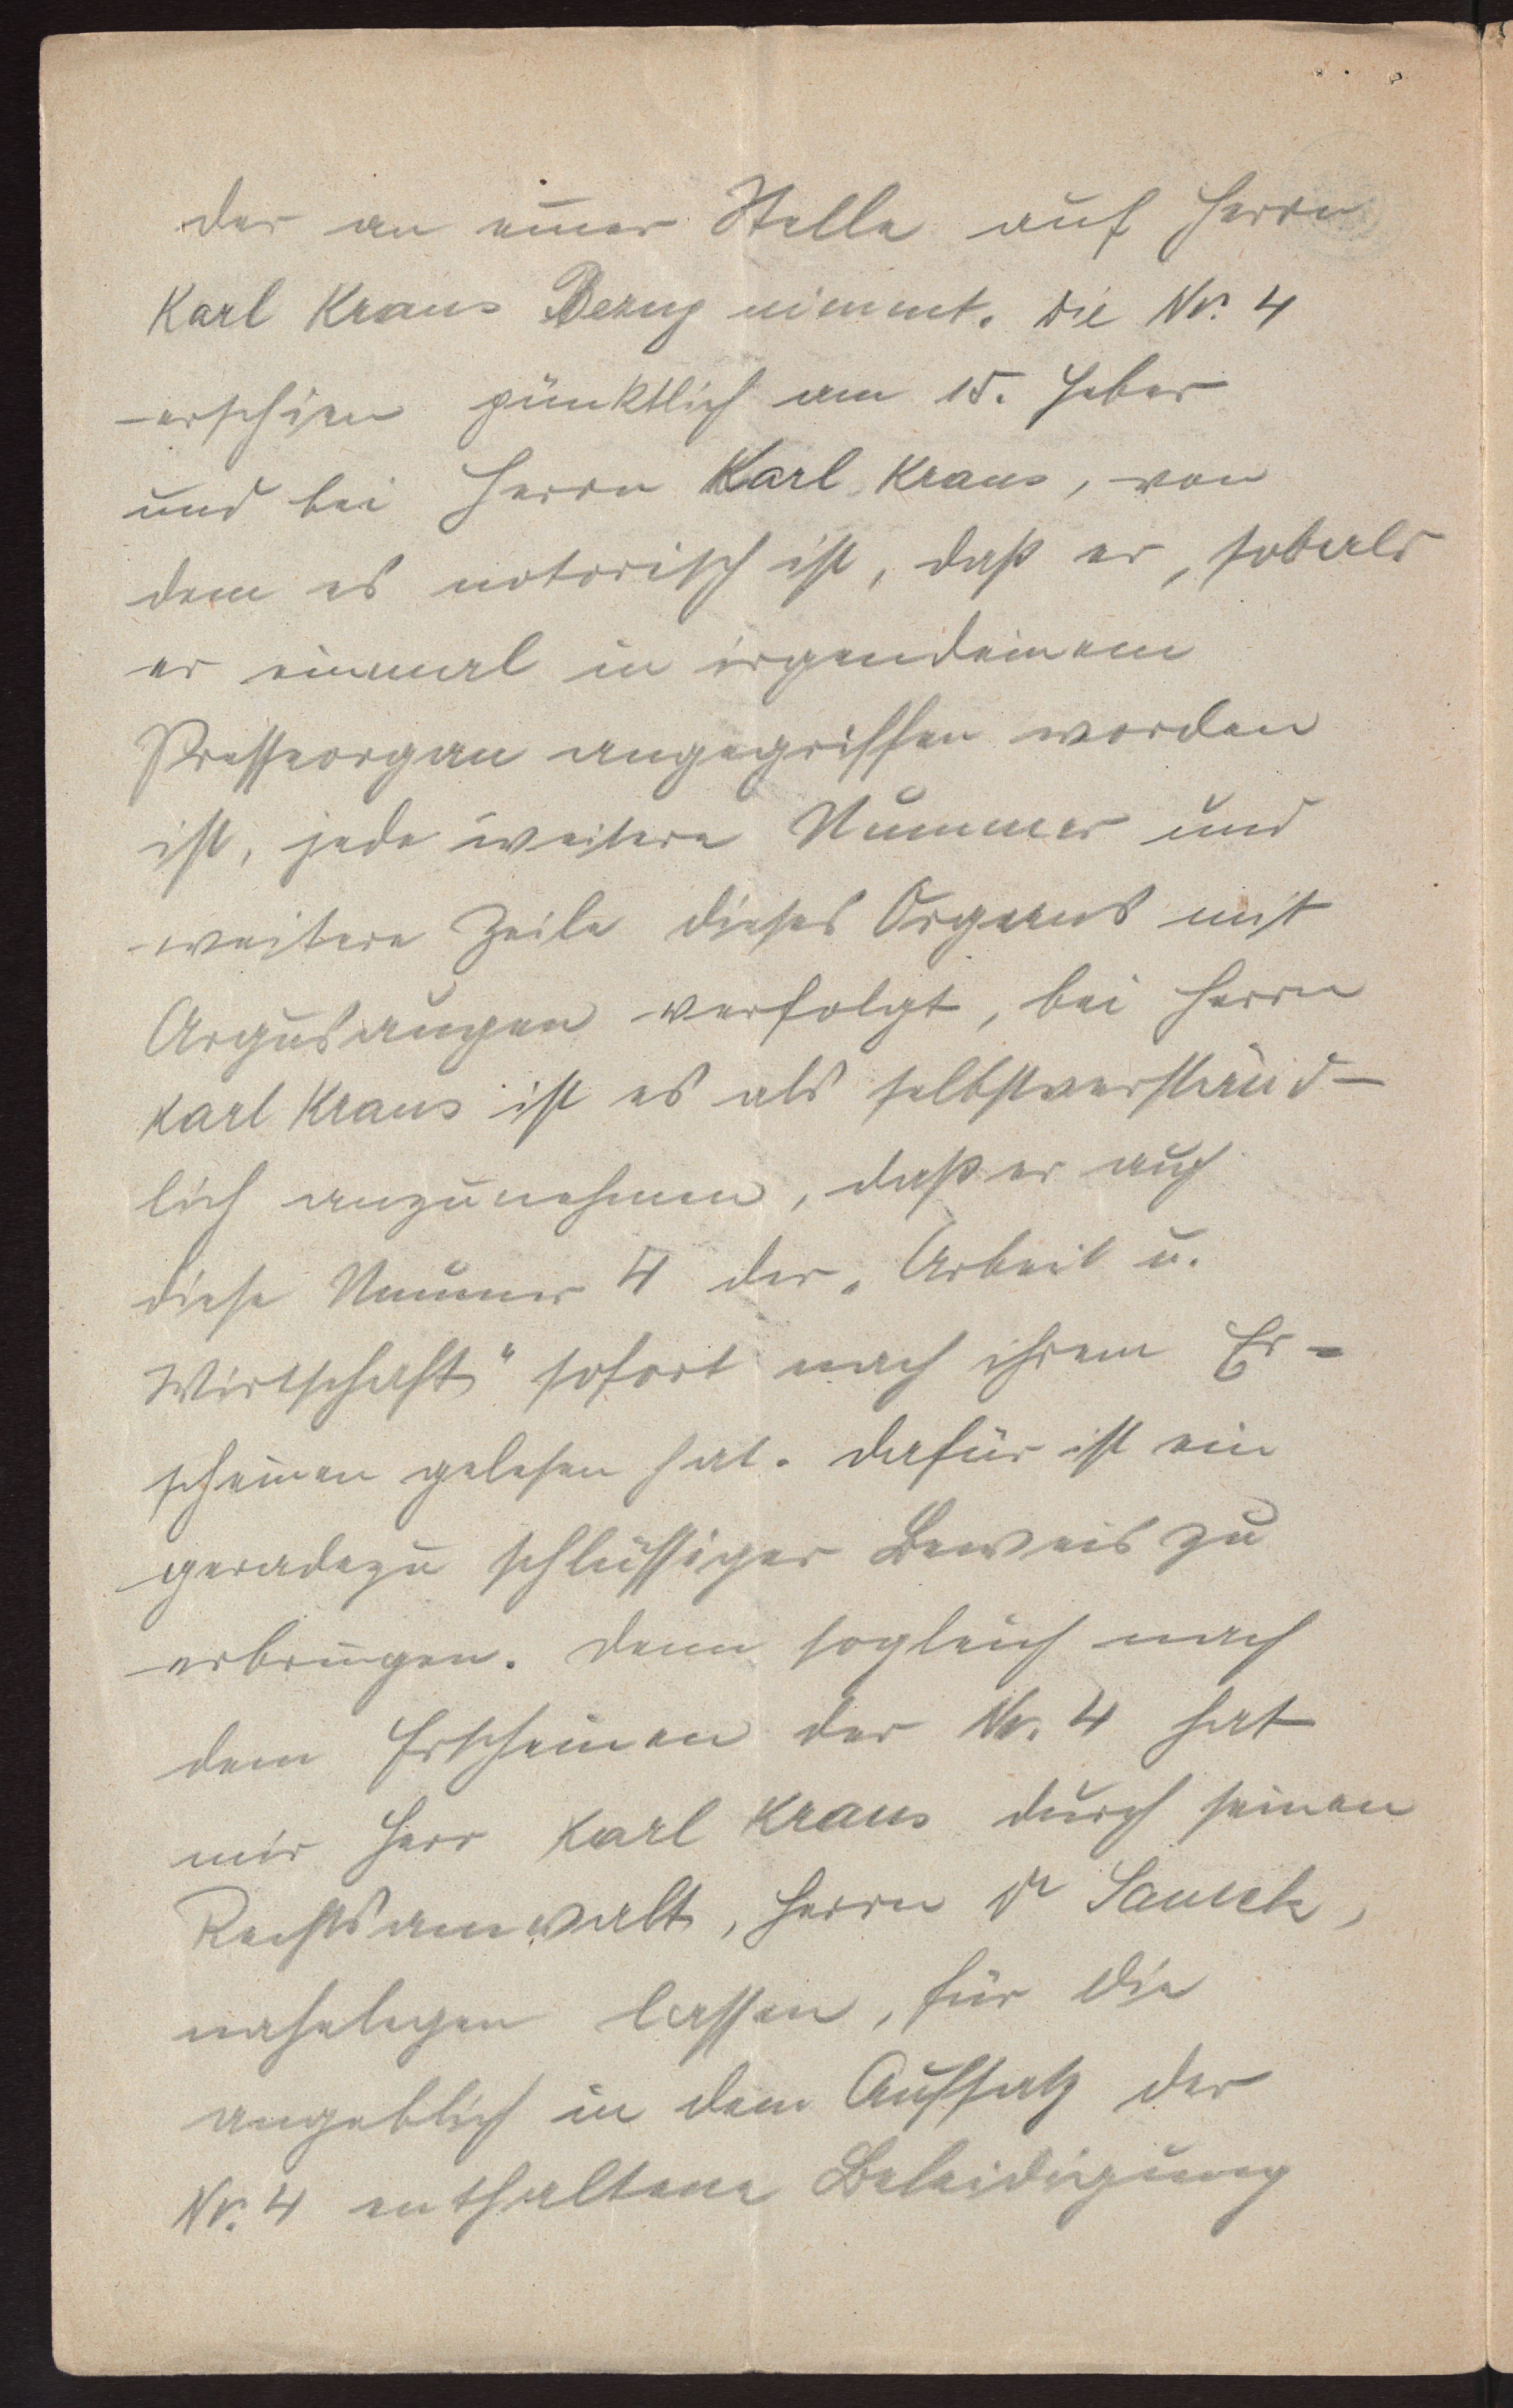 der an einer Stelle auf Herrn
Karl Kraus Bezug nimmt. Die Nr. 4
erschien pünktlich am 15. Feber
und bei Herrn Karl Kraus, von
dem es notorisch ist, daß er, sobald
er einmal in irgendeinem
Presseorgan angegriffen worden
ist, jede weitere Nummer und
weitere Zeile dieses Organs mit
Argusaugen verfolgt, bei Herrn
Karl Kraus ist es als selbstverständ-
lich anzunehmen, daß er auch
diese Nummer 4 der „Arbeit u.
Wirtschaft“ sofort nach ihrem Er=
scheinen gelesen hat. Dafür ist ein
geradezu schlüssiger Beweis zu
erbringen. Denn sogleich nach
dem Erscheinen der Nr. 4 hat
mir Herr Karl Kraus durch seinen
Rechtsanwalt, Herrn Dr Samek,
nahelegen lassen, für die
angeblich in dem Aufsatz der
Nr. 4 enthaltene Beleidigung